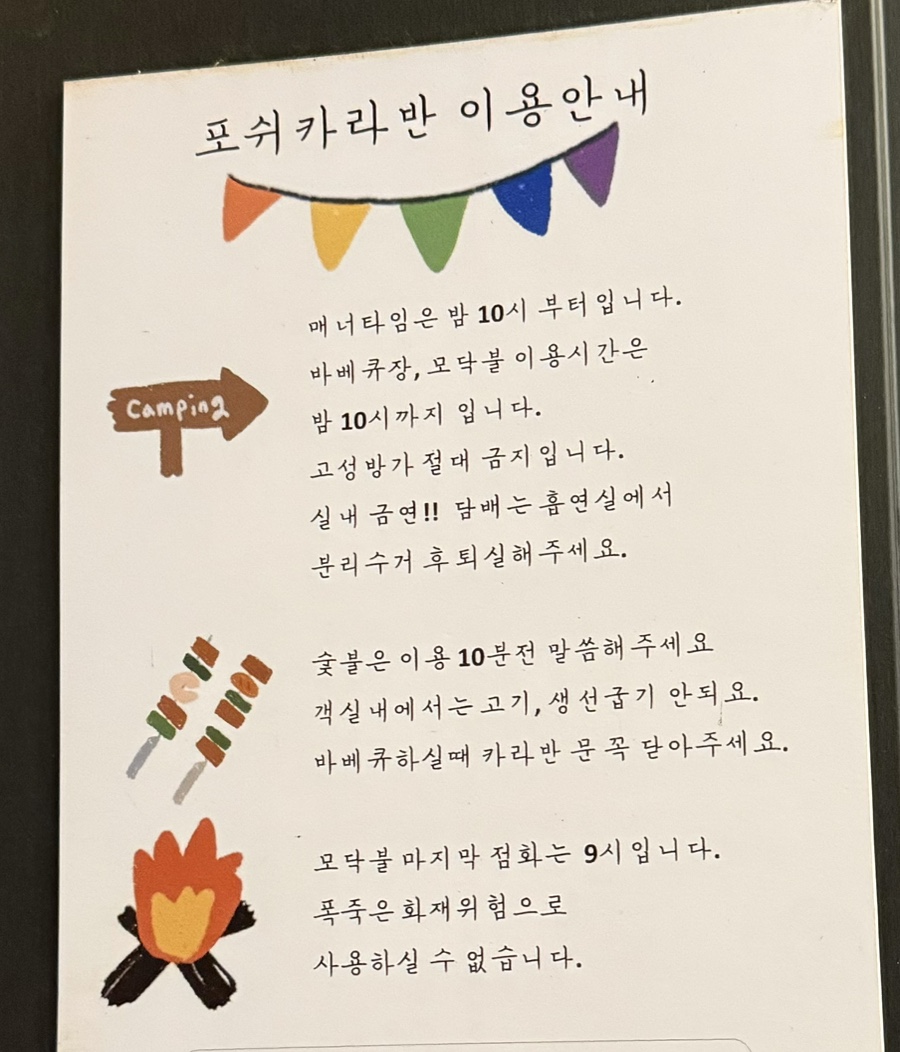 포쉬카라반 이용안내
매너타임은 밤 10시 부터입니다.
바베큐장, 모닥불 이용시간은
Camping
밤 10시까지 입니다.
고성방가 절대 금지입니다.
실내 금연!! 담배는 흡연실에서
분리수거 후 퇴실해주세요.
숯불은 이용 10분전 말씀해주세요
객실내에서는 고기, 생선굽기 안되요.
바베큐하실때 카라반 문 꼭 닫아주세요.
모닥불 마지막 점화는 9시입니다.
폭죽은 화재위험으로
사용하실 수 없습니다.